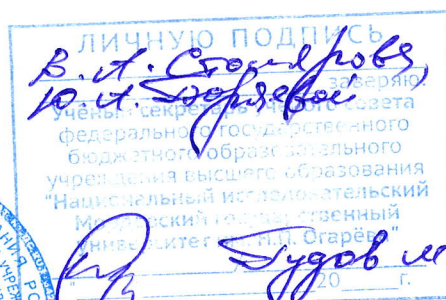 ЛИЧНУЮ ПОДПИСЬ
В. А. Столярова,
заверяю
Ю. А.
Учёный секретарь Учёного совета
федерального государственного
бюджетного образовательного
учреждения высшего образования
"Национальный исследовательский
Мордовский государственный
университет им. Н.П. Огарёва"
Гудов М
" 20 г.